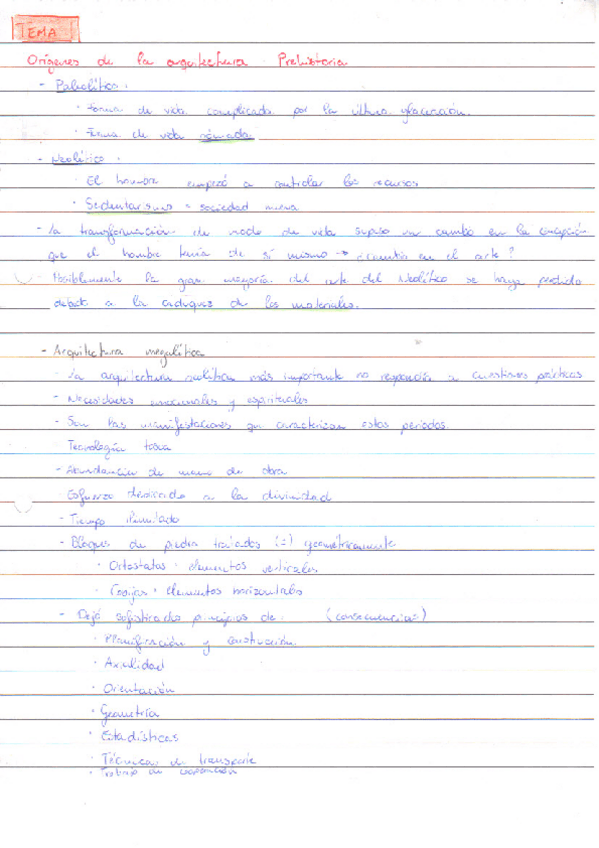 TEMA
Orígenes de la arquitectura Prehistoria
- Paleolítico:
· Forma de vida complicada por la última glaciación.
· Forma de vida nómada
- Neolítico:
· El hombre empezó a controlar los recursos
· Sedentarismo = sociedad nueva
- La transformación de modo de vida supuso un cambio en la concepción
que el hombre tenía de sí mismo → ¿cambia en el arte?
- Posiblemente la gran mayoría del arte del Neolítico se haya perdido
debido a la de los materiales.
- Arquitectura megalítica
- La arquitectura neolítica más importante no respondía a cuestiones prácticas
- Necesidades emocionales y espirituales
- Son las manifestaciones que caracterizan estos periodos.
Tecnología tosca
- Abundancia de mano de obra
Esfuerzo dedicado a la divinidad
- Tiempo ilimitado
- Bloques de piedra tratados (=) geométricamente
· Ortostatos: elementos verticales
· Cobijas: elementos horizontales
- Dejó sofisticados principios de: (consecuencias)
· Planificación y construcción
· Axialidad
· Orientación
· Geometría
· Estadísticas
· Técnicas de transporte
· Trabajo de